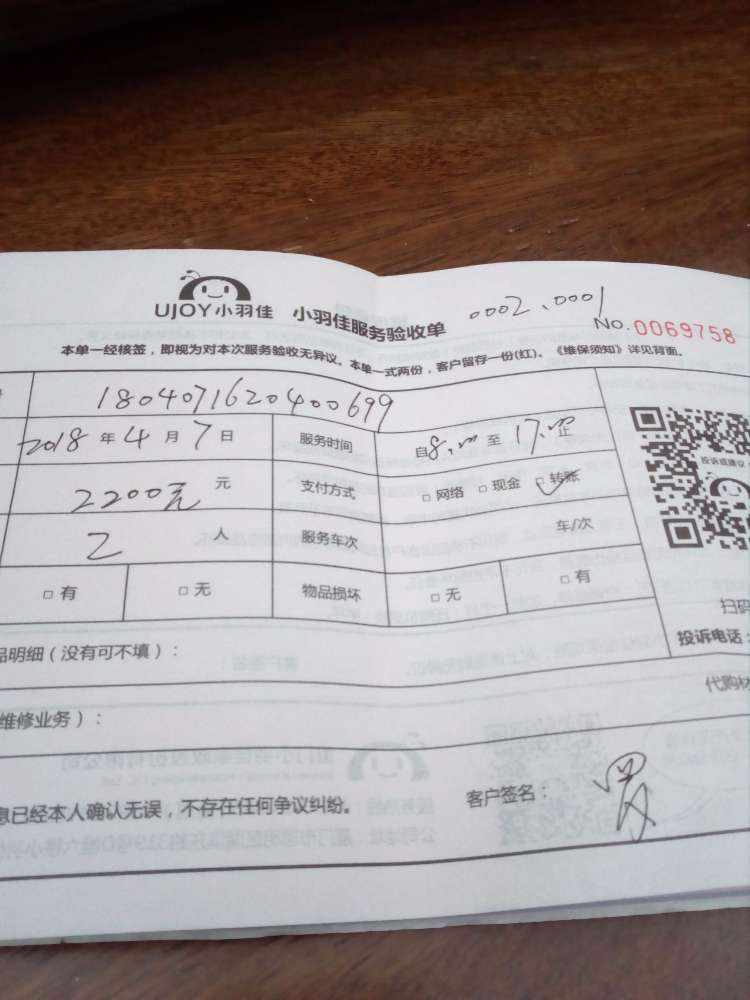 0002、0001
UJOY小羽佳 小羽佳服务验收单
NO.0069758
本单一经核签，即视为对本次服务验收无异议。本单一式两份，客户留存一份(红)。《维保须知》详见背面。
1804071620400699
2018 年 4 月 7 日 服务时间 自8:00至17:00止
投诉或建议
2200元 元 支付方式 □网络 □现金 □转账
2 人 服务车次 车/次
□有 □无 物品损坏 □无 □有
扫码
品明细（没有可不填）：
投诉电话：
代购材
维修业务）：
息已经本人确认无误，不存在任何争议纠纷。 客户签名：